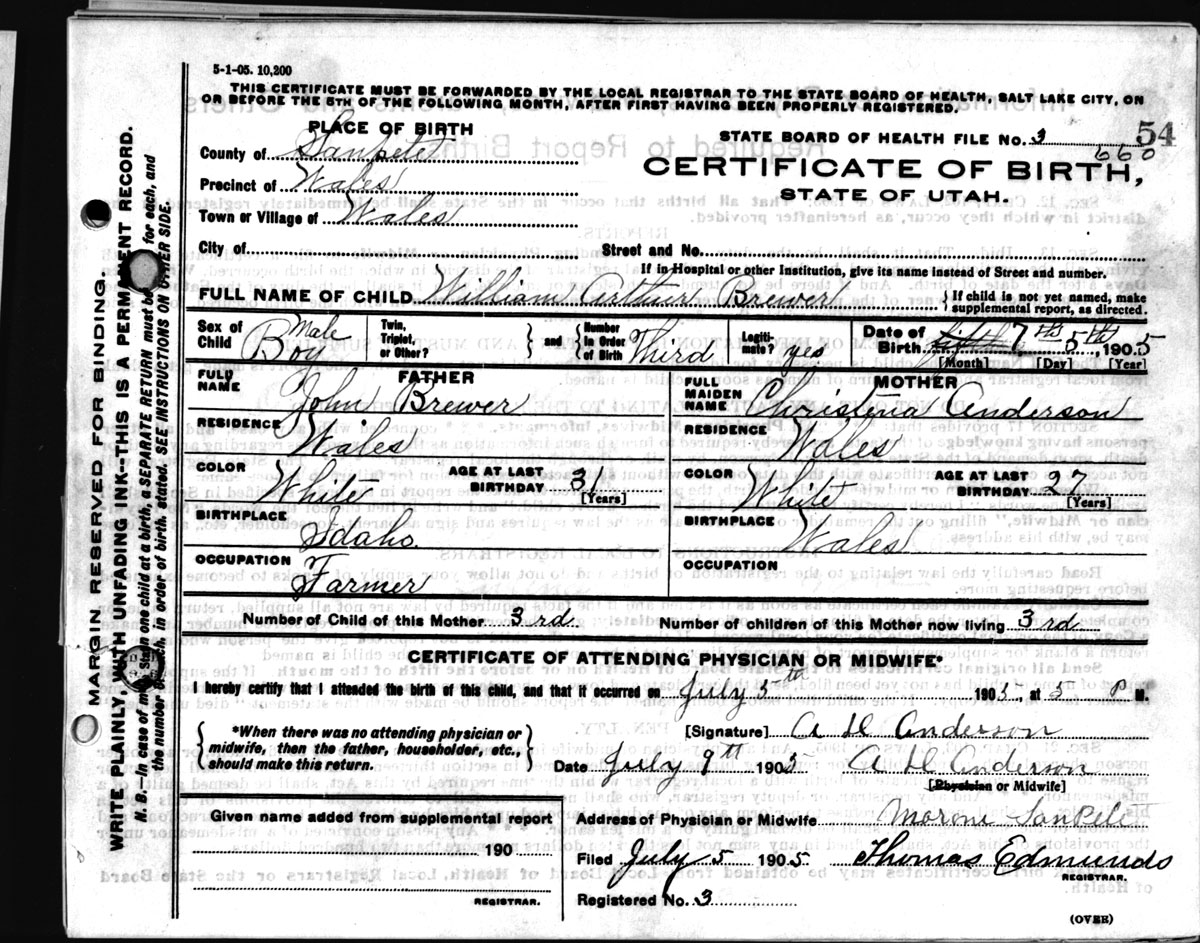 5-1-05. 10,200
THIS CERTIFICATE MUST BE FORWARDED BY THE LOCAL REGISTRAR TO THE STATE BOARD OF HEALTH, SALT LAKE CITY, ON
OR BEFORE THE 5TH OF THE FOLLOWING MONTH, AFTER FIRST HAVING BEEN PROPERLY REGISTERED.
PLACE OF BIRTH
STATE BOARD OF HEALTH FILE No. 3 54
660
County of Sanpete
CERTIFICATE OF BIRTH,
Precinct of Wales
STATE OF UTAH.
Town or Village of Wales
City of Street and No.
If in Hospital or other Institution, give its name instead of Street and number.
FULL NAME OF CHILD William Arthur Brewer { If child is not yet named, make supplemental report, as directed.
Sex of Child Male Boy Twin, Triplet, or Other? } and { Number In Order of Birth Third Legiti- mate? yes Date of Birth 7th 5th, 1905
[Month] [Day] [Year]
FATHER
FULL NAME John Brewer
RESIDENCE Wales
COLOR White AGE AT LAST BIRTHDAY 31 [Years]
BIRTHPLACE Idaho.
OCCUPATION Farmer
MOTHER
FULL MAIDEN NAME Christena Anderson
RESIDENCE Wales
COLOR White AGE AT LAST BIRTHDAY 27 [Years]
BIRTHPLACE Wales
OCCUPATION
Number of Child of this Mother 3rd Number of children of this Mother now living 3rd
CERTIFICATE OF ATTENDING PHYSICIAN OR MIDWIFE*
I hereby certify that I attended the birth of this child, and that it occurred on July 5th 1905, at 5 P M.
{ *When there was no attending physician or
midwife, then the father, householder, etc.,
should make this return. }
[Signature] A D Anderson
Date July 9th 1905 A D Anderson
[Physician or Midwife]
Given name added from supplemental report
190
REGISTRAR.
Address of Physician or Midwife Moroni Sanpete
Filed July 5 1905 Thomas Edmunds
REGISTRAR.
Registered No. 3
(OVER)
MARGIN RESERVED FOR BINDING.
WRITE PLAINLY, WITH UNFADING INK--THIS IS A PERMANENT RECORD.
N. B. In case of more than one child at a birth, a SEPARATE RETURN must be for each, and
the number of each, in order of birth, stated. SEE INSTRUCTIONS ON OTHER SIDE.